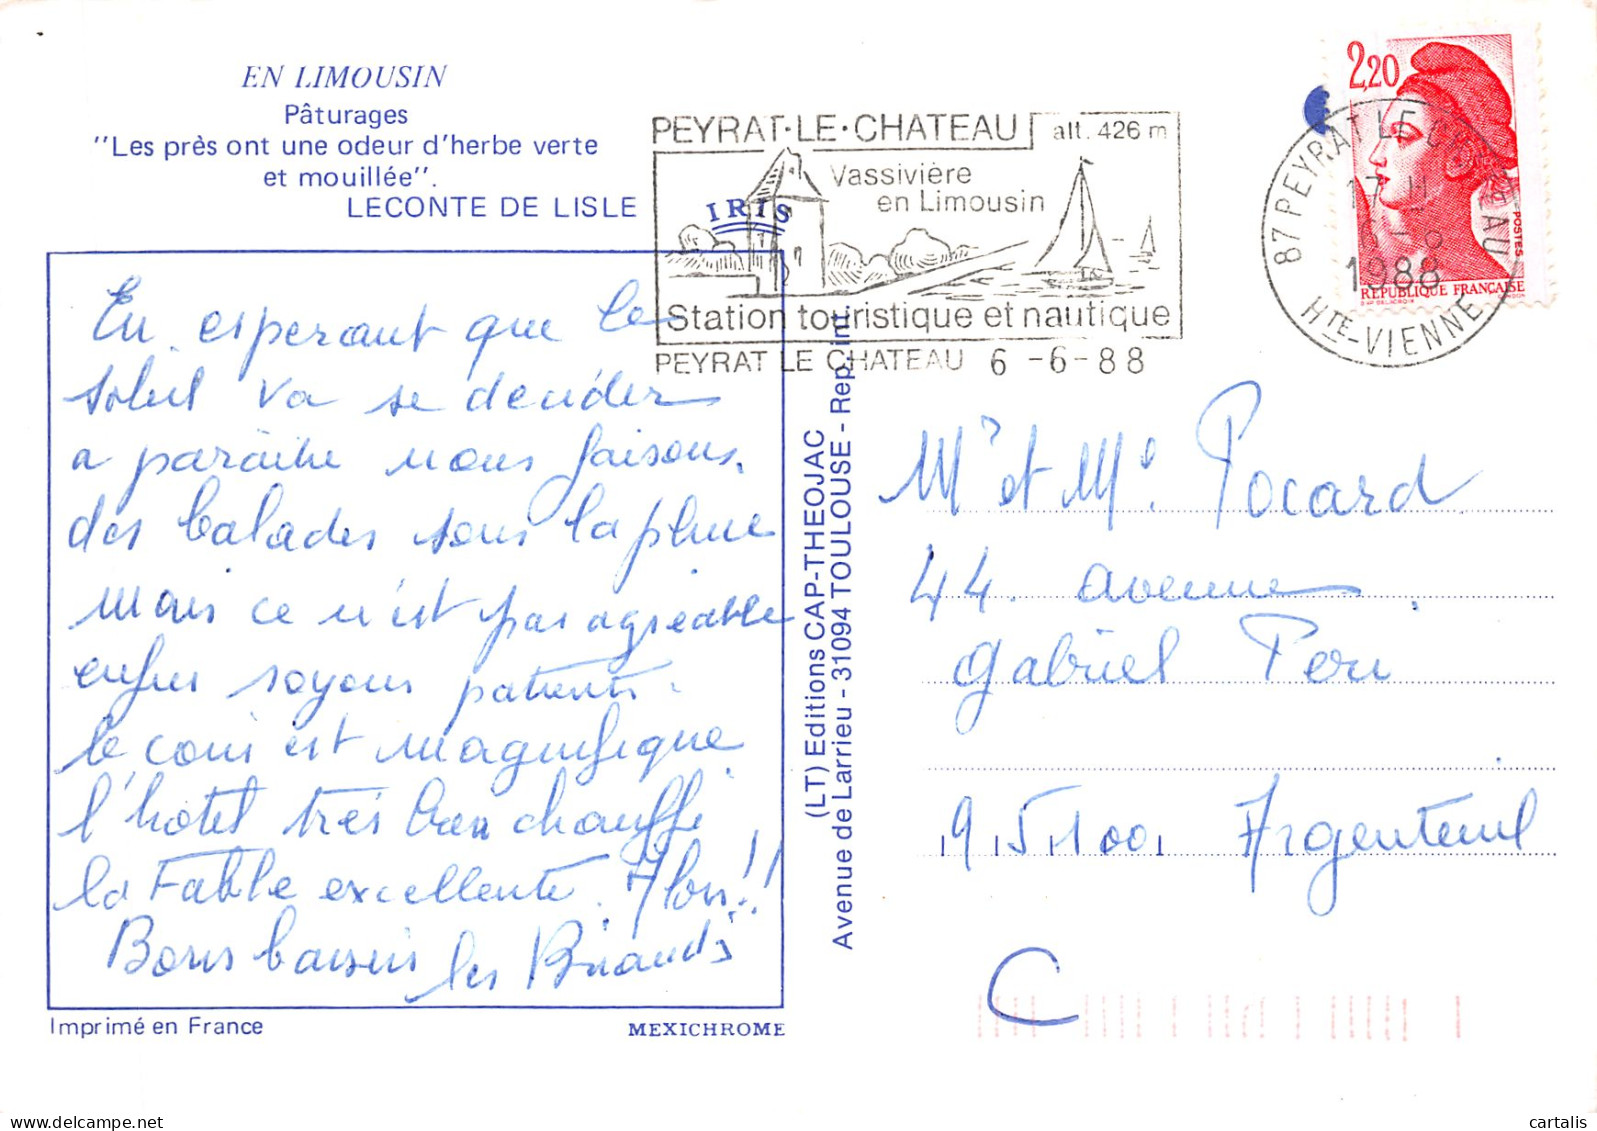 EN LIMOUSIN
Pâturages
"Les près ont une odeur d'herbe verte
et mouillée".
LECONTE DE LISLE
PEYRAT-LE-CHATEAU alt. 426 m
Vassivière
en Limousin
IRIS
Station touristique et nautique
PEYRAT LE CHATEAU 6 -6-88
2,20
POSTES
REPUBLIQUE FRANÇAISE
87 PEYRAT LE CHATEAU
17 H
6 - 6
1988
HTE-VIENNE
En esperant que le
soleil va se decider
a paraitre nous faisons
des balades sous la pluie
Mais ce n'est pas agreable
enfin soyons patients.
le coin est magnifique
l'hotel très bien chauffé
la Table excellente. Alors!!
Bons baisers les
(LT) Editions CAP-THEOJAC
Avenue de Larrieu - 31094 TOULOUSE - Rep. int.
Mr et Me Pocard
44. avenue
Gabriel Peri
95100 Argenteuil
C
Imprimé en France
MEXICHROME
cartalis